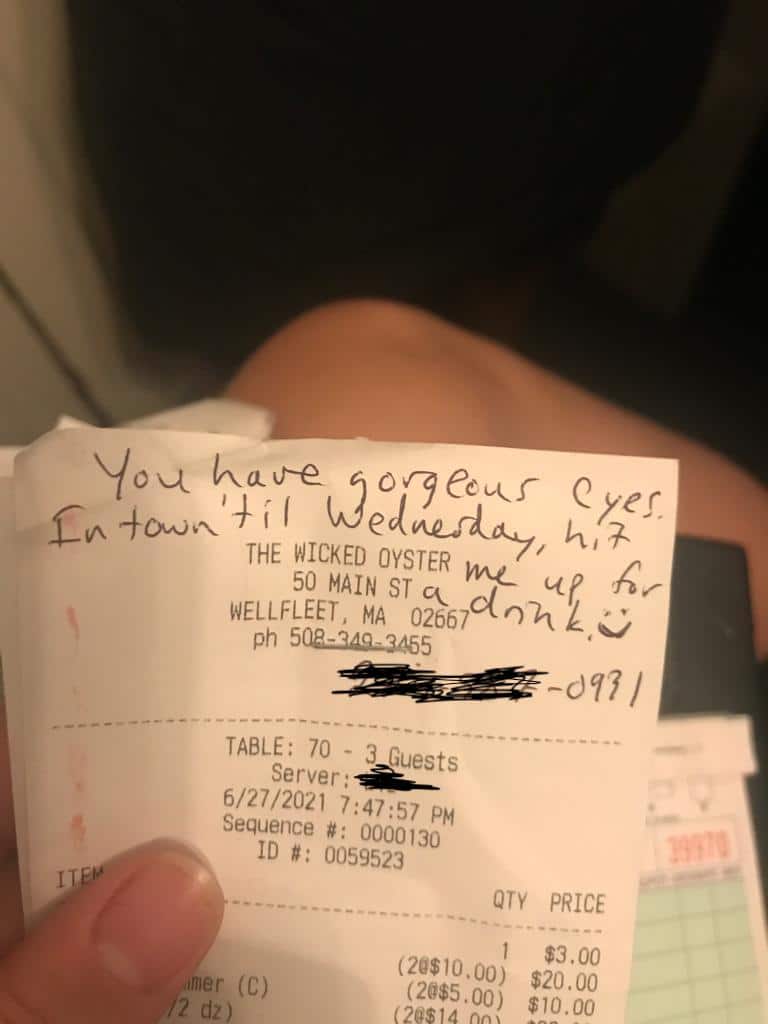 You have gorgeous eyes.
In town 'til Wednesday, hit
me up for
a drink.
THE WICKED OYSTER
50 MAIN ST
WELLFLEET, MA 02667
ph 508-349-3455
-0931
TABLE: 70 - 3 Guests
Server:
6/27/2021 7:47:57 PM
Sequence #: 0000130
ID #: 0059523
ITEM QTY PRICE
1 $3.00
(2@$10.00) $20.00
mmer (C) (2@$5.00) $10.00
/2 dz) (2@$14.00)
39970